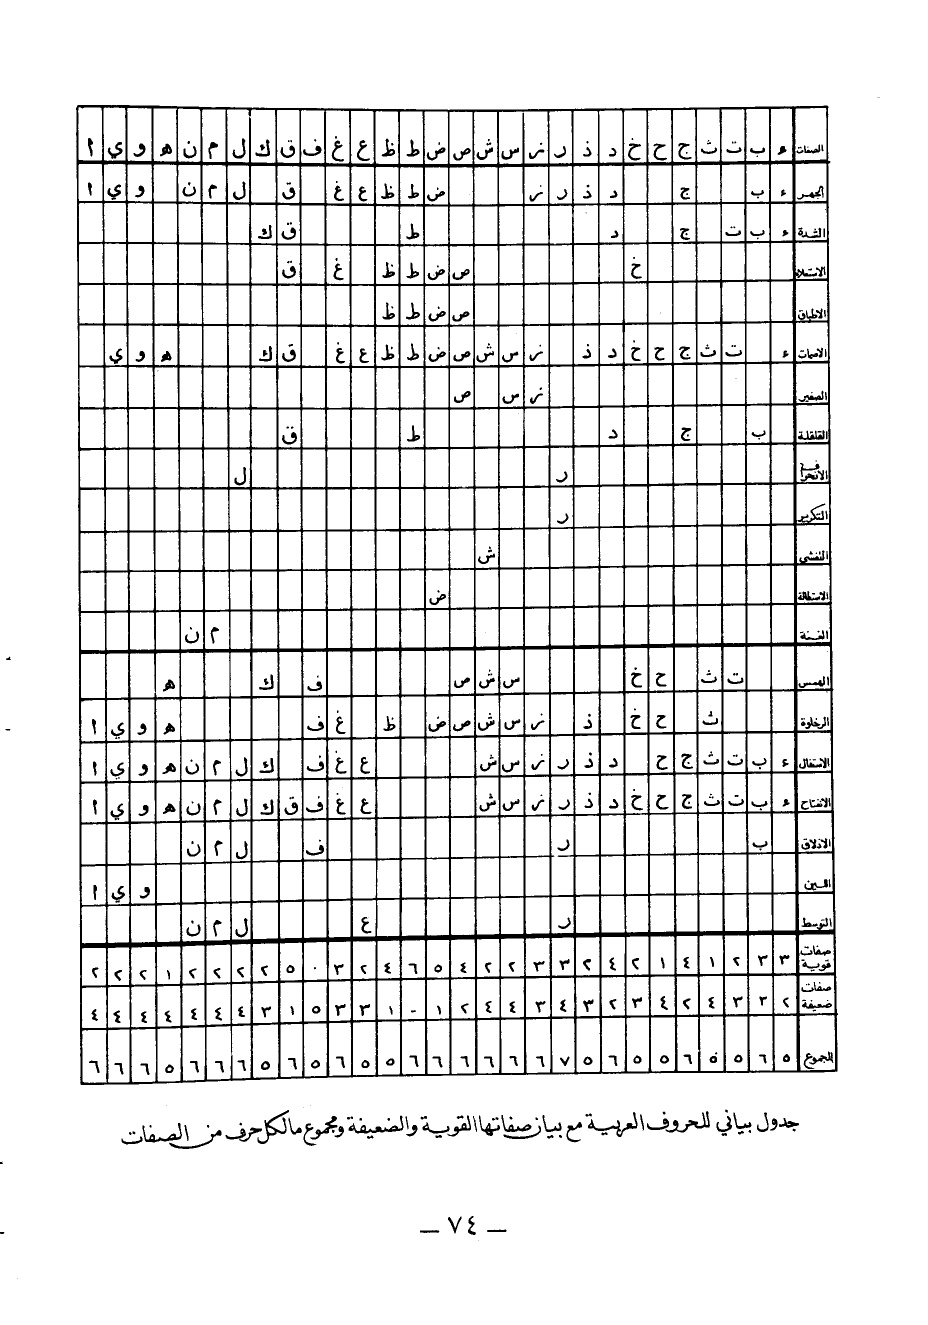 الصفات ء ب ت ث ج ح خ د ذ ر ز س ش ص ض ط ظ ع غ ف ق ك ل م ن ه و ي ا
الجهر ء ب ج د ذ ر ز ض ط ظ ع غ ق ل م ن و ي ا
الشدة ء ب ت ج د ط ق ك
الاستعلاء خ ص ض ط ظ غ ق
الاطباق ص ض ط ظ
الاصمات ء ت ث ج ح خ د ذ ز س ش ص ض ط ظ ع غ ق ك ه و ي
الصفير ز س ص
القلقلة ب ج د ط ق
الانحراف ر ل
التكرير ر
التفشي ش
الاستطالة ض
الغنة م ن
الهمس ت ث ح خ س ش ص ف ك ه
الرخاوة ث ح خ ذ ز س ش ص ض ظ غ ف ه و ي ا
الاستفال ء ب ت ث ج ح د ذ ر ز س ش ع غ ف ك ل م ن ه و ي ا
الانفتاح ء ب ت ث ج ح خ د ذ ر ز س ش ع غ ف ق ك ل م ن ه و ي ا
الاذلاق ب ر ف ل م ن
اللين و ي ا
التوسط ر ع ل م ن
صفات قوية ٣ ٣ ٢ ١ ٤ ١ ٢ ٤ ٢ ٣ ٣ ٢ ٢ ٤ ٥ ٦ ٤ ٢ ٣ ٠ ٥ ٢ ٢ ٢ ٢ ١ ٢ ٢ ٢
صفات ضعيفة ٢ ٣ ٣ ٤ ٢ ٤ ٣ ٢ ٣ ٤ ٣ ٤ ٤ ٢ ١ - ١ ٣ ٣ ٥ ١ ٣ ٤ ٤ ٤ ٤ ٤ ٤ ٤
المجموع ٥ ٦ ٥ ٥ ٦ ٥ ٥ ٦ ٥ ٧ ٦ ٦ ٦ ٦ ٦ ٦ ٥ ٥ ٦ ٥ ٦ ٥ ٦ ٦ ٦ ٥ ٦ ٦ ٦
جدول بياني للحروف العربية مع بيان صفاتها القوية والضعيفة ومجموع ما لكل حرف من الصفات
— ٧٤ —